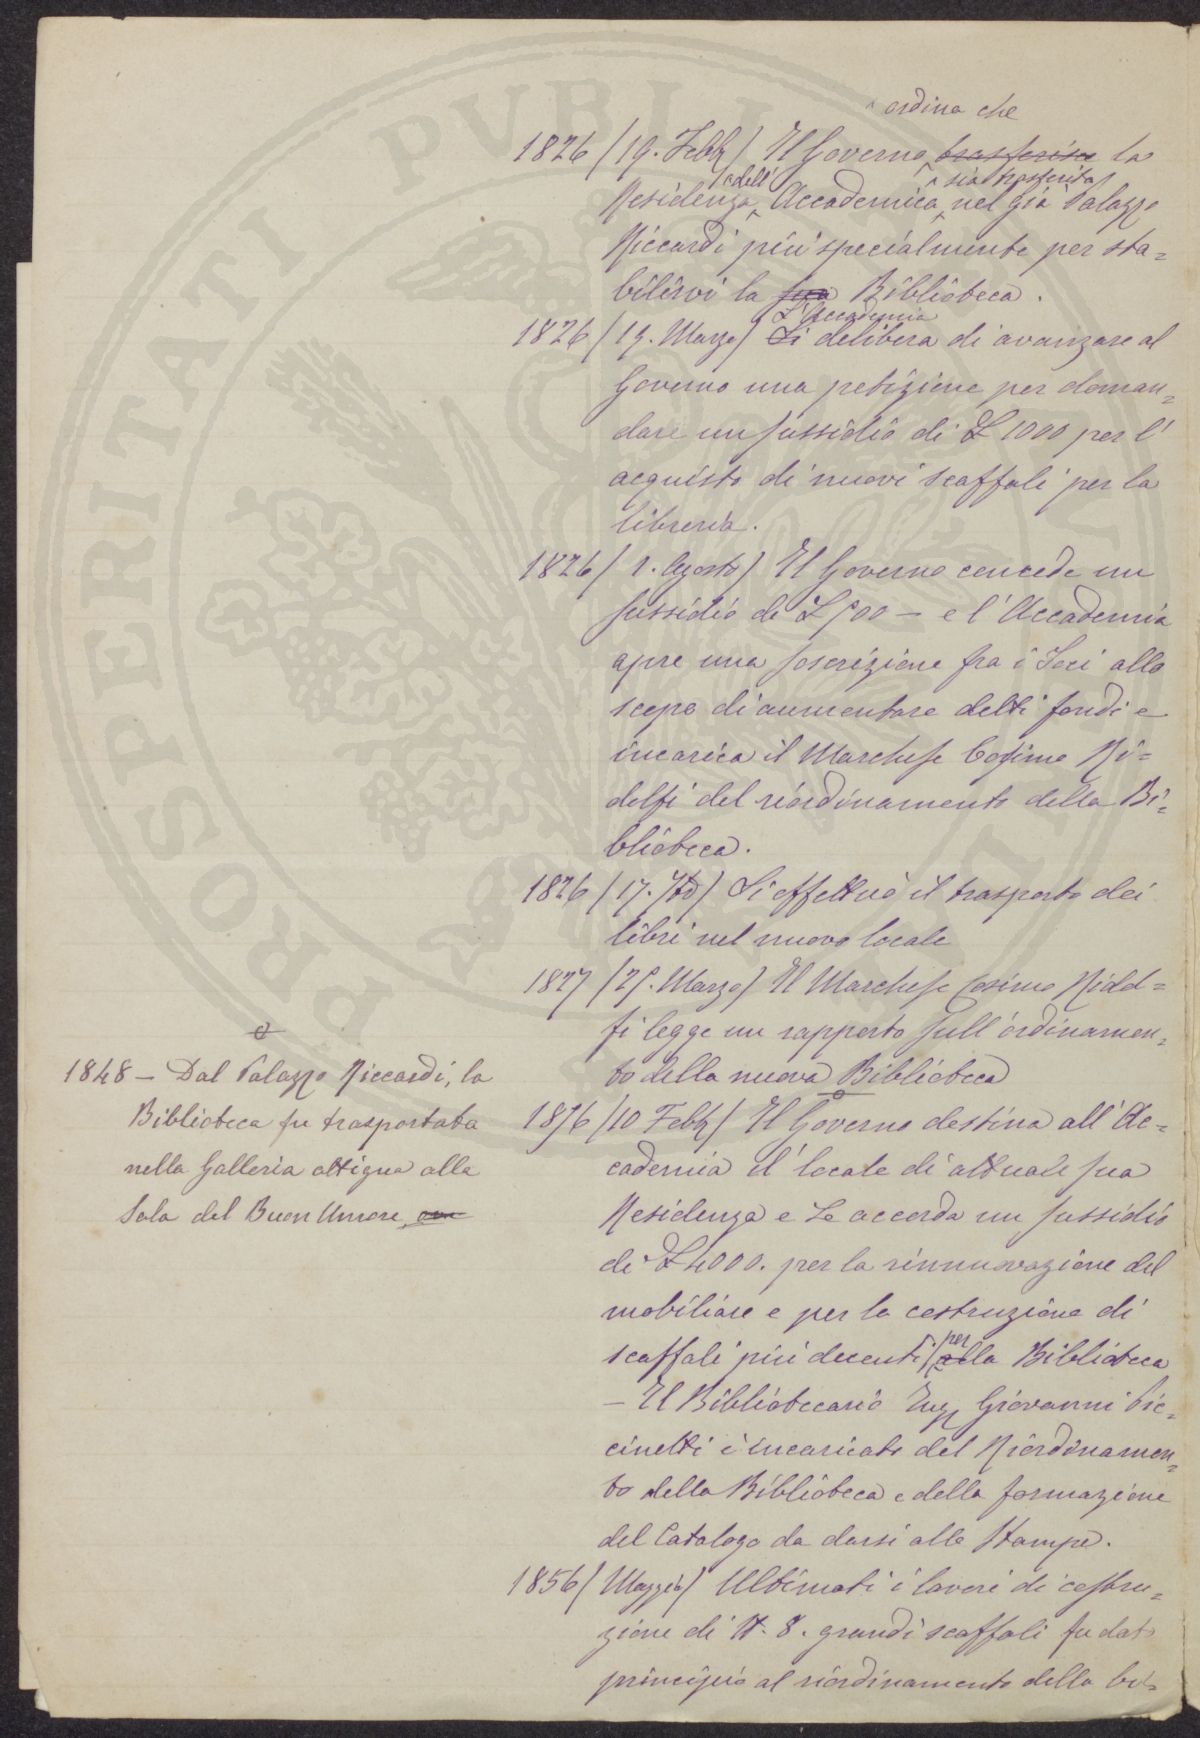 ordina che
1826 (19. Febb.) Il Governo trasferisce la
dell' sia trasferita
Residenza Accademica nel già Palazzo
Riccardi più specialmente per sta=
bilirvi la sua Biblioteca.
L'Accademia
1826 (19. Marzo) Si delibera di avanzare al
Governo una petizione per doman=
dare un sussidio di £ 1000 per l'
acquisto di nuovi scaffali per la
libreria.
1826 (1. Agosto) Il Governo concede un
sussidio di £ 500 — e l'Accademia
apre una soscrizione fra i Soci allo
scopo di aumentare detti fondi e
incarica il Marchese Cosimo Ri=
dolfi del riordinamento della Bi=
blioteca.
1826 (17. 7bre) Si effettuò il trasporto dei
libri nel nuovo locale
1827 (25. Marzo) Il Marchese Cosimo Ridol=
fi legge un rapporto sull'ordinamen=
to della nuova Biblioteca
1848 — Dal Palazzo Riccardi, la
Biblioteca fu trasportata
nella Galleria attigua alla
Sala del Buon Umore,
1856 (10 Febb.) Il Governo destina all'Ac=
cademia il locale di attuale sua
Residenza e Le accorda un sussidio
di £ 4000. per la rinnuovazione del
mobiliare e per la costruzione di
per
scaffali più decenti alla Biblioteca
— Il Bibliotecario Giovanni Pic=
cinetti è incaricato del Riordinamen=
to della Biblioteca e della formazione
del Catalogo da darsi alle Stampe.
1856 (Maggio) Ultimati i lavori di costru=
zione di N. 8. grandi scaffali fu dato
principio al riordinamento della bi=